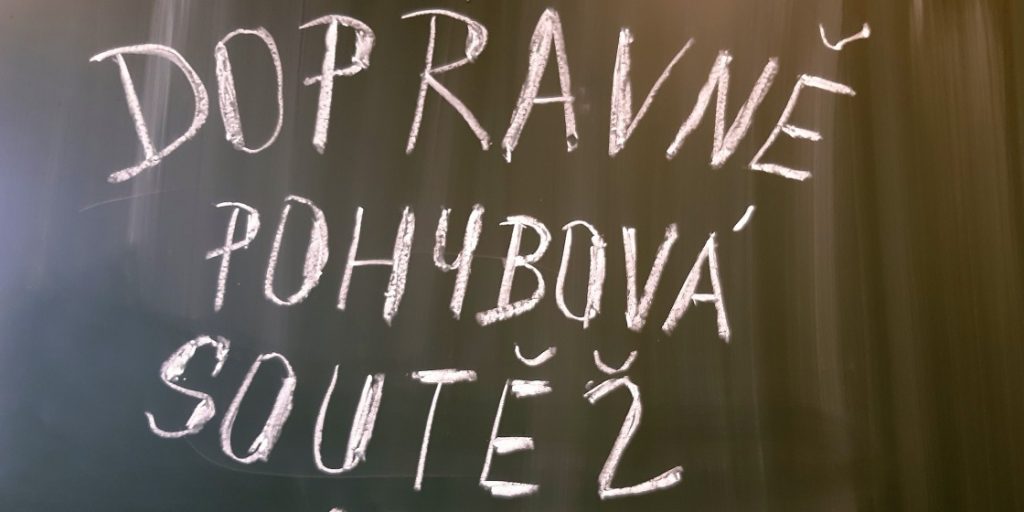 DOPRAVNĚ
POHYBOVÁ
SOUTĚŽ